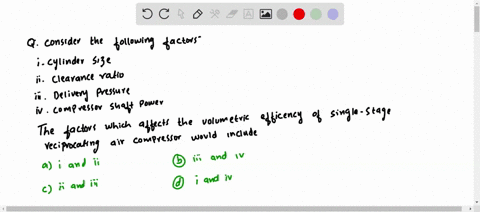 Q. consider the following factors-
i. cylinder size
ii. Clearance ratio
iii. Delivery pressure
iv. compressor shaft power
The factors which affects the volumetric efficency of single-stage
reciprocating air compressor would include
a) i and ii
b) iii and iv
c) ii and iii
d) i and iv